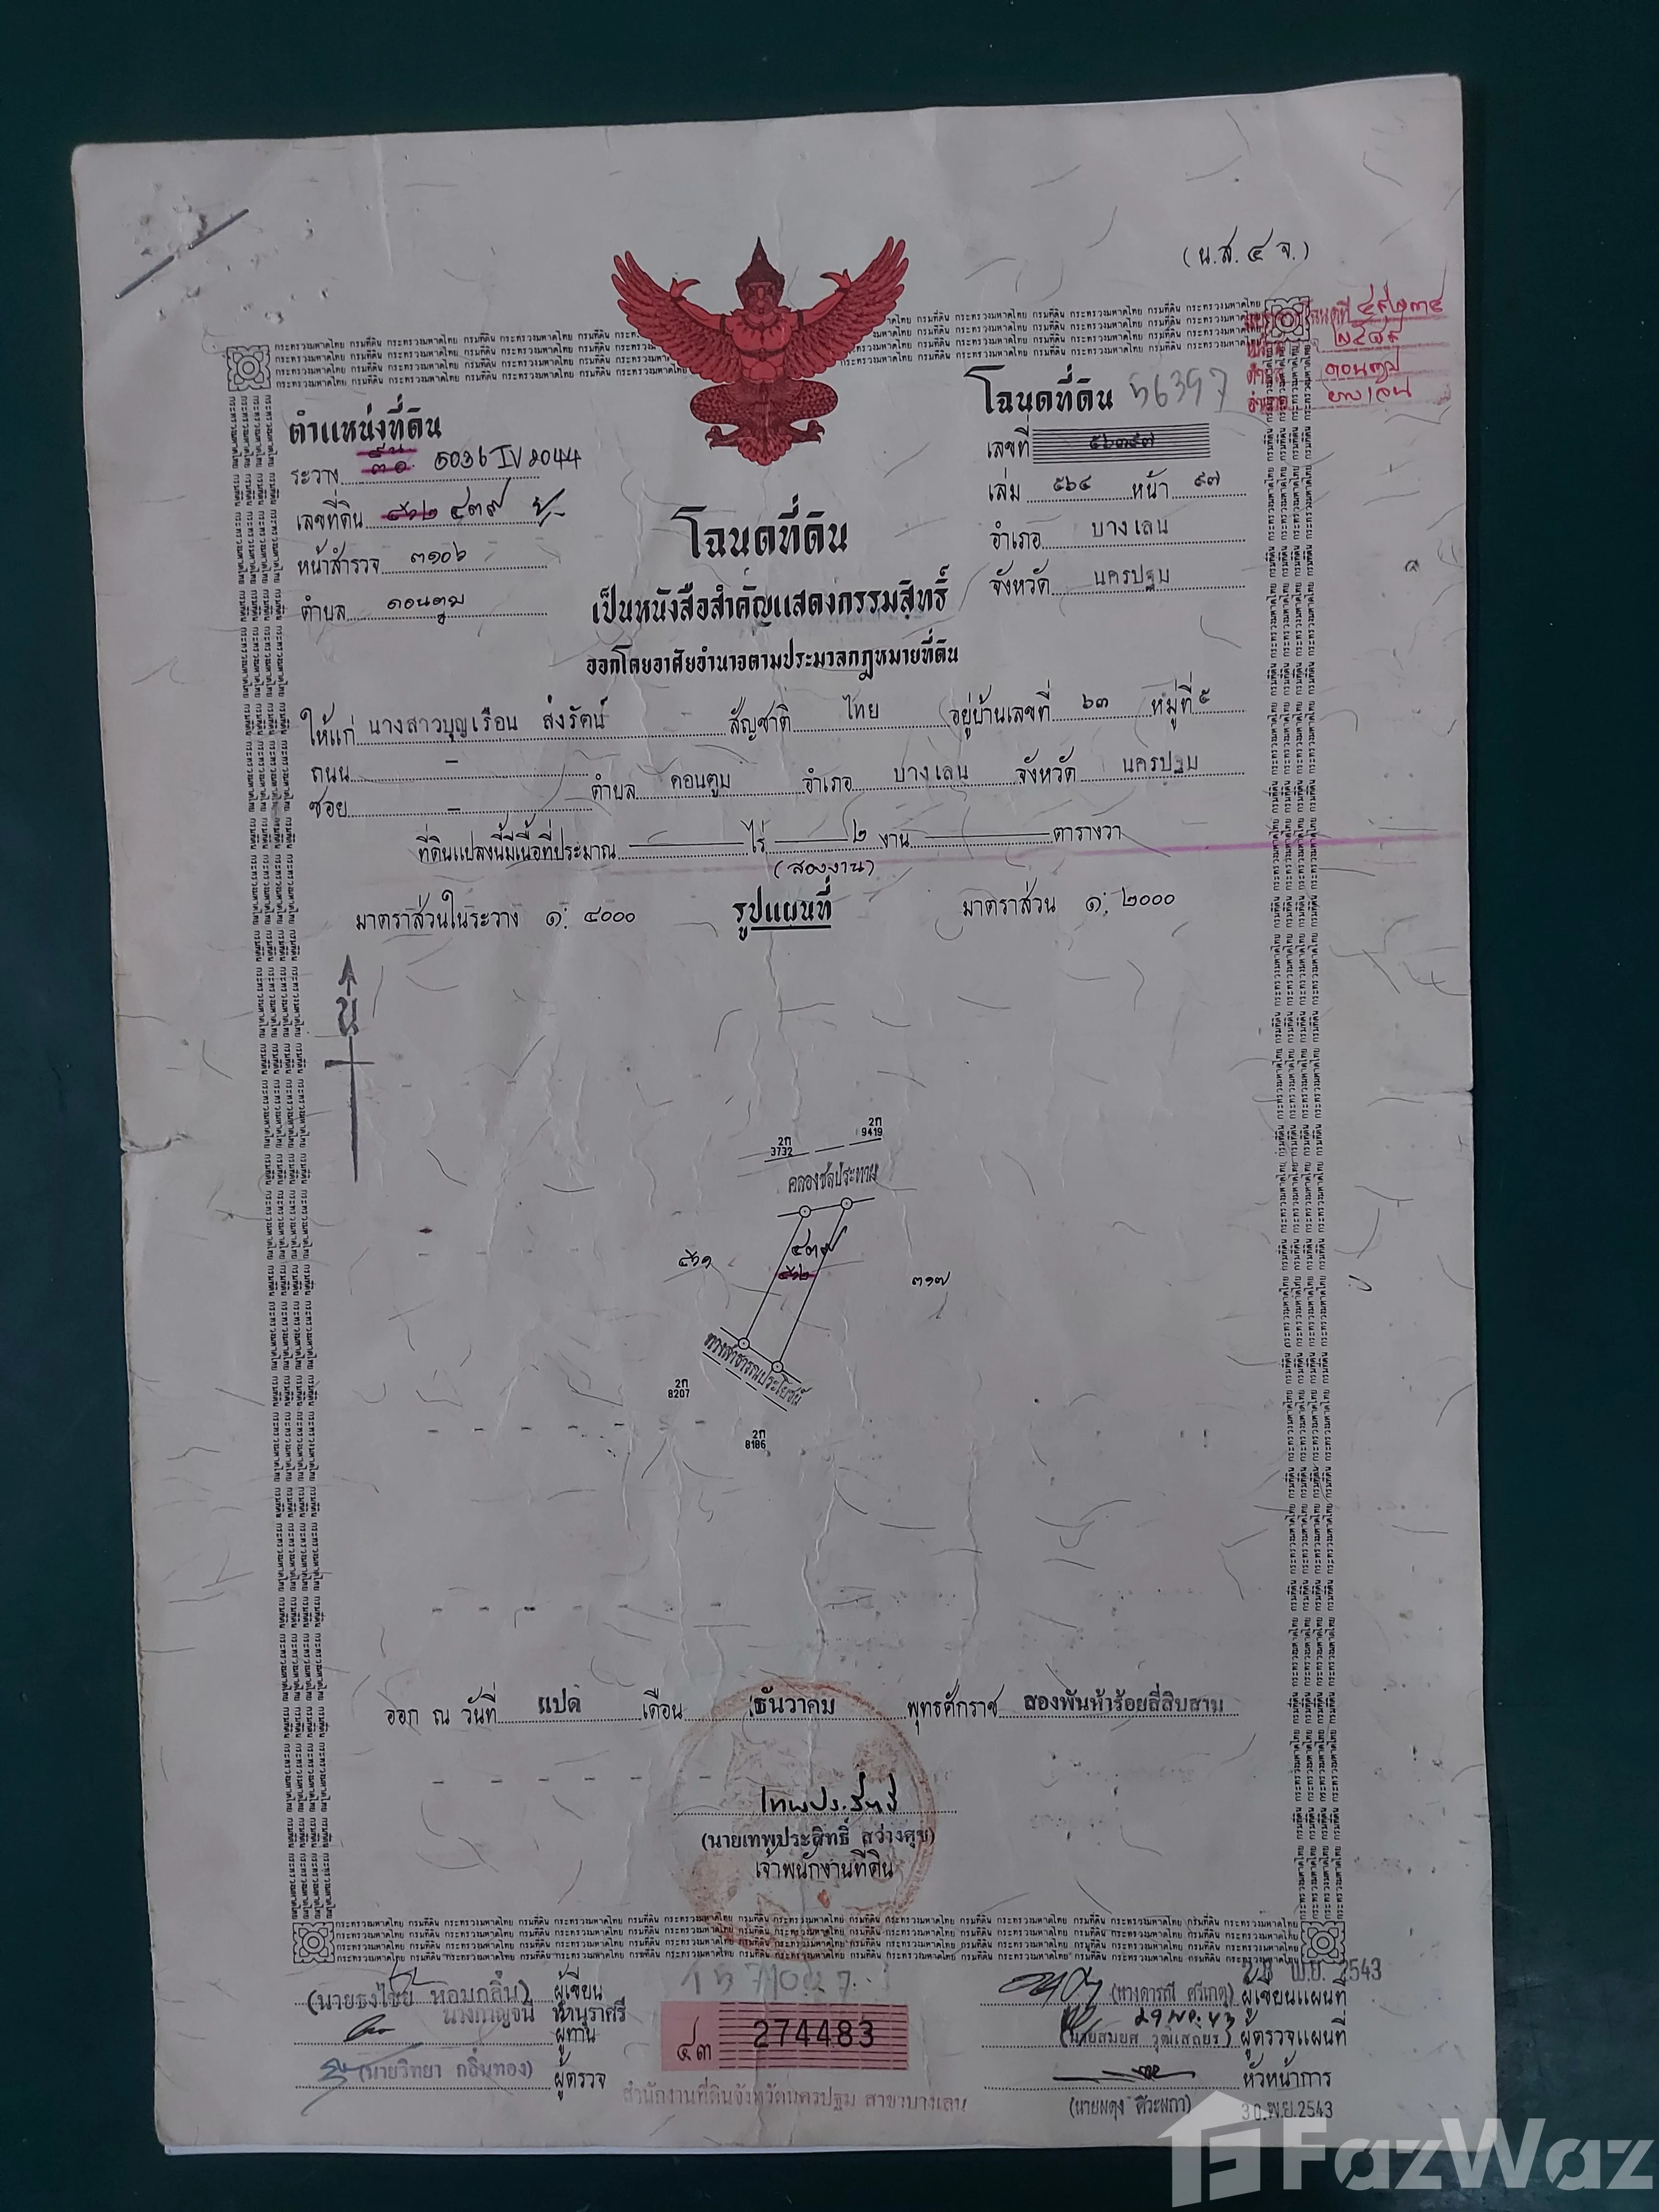 (น.ส. ๔ จ.)
โฉนดที่ดิน 56397
ตำแหน่งที่ดิน
ระวาง 5036 IV 2044
เลขที่ดิน ๔๓๙
หน้าสำรวจ ๓๑๐๖
ตำบล ดอนตูม
เลขที่ ๕๖๓๙๗
เล่ม ๕๖๔ หน้า ๙๗
อำเภอ บางเลน
จังหวัด นครปฐม
โฉนดที่ดิน
เป็นหนังสือสำคัญแสดงกรรมสิทธิ์
ออกโดยอาศัยอำนาจตามประมวลกฎหมายที่ดิน
ให้แก่ นางสาวบุญเรือน ส่งรัตน์ สัญชาติ ไทย อยู่บ้านเลขที่ ๖๓ หมู่ที่ ๕
ถนน - ตำบล ดอนตูม อำเภอ บางเลน จังหวัด นครปฐม
ซอย -
ที่ดินแปลงนี้มีเนื้อที่ประมาณ ไร่ ๒ งาน ตารางวา
(สองงาน)
มาตราส่วนในระวาง ๑: ๔๐๐๐ รูปแผนที่ มาตราส่วน ๑: ๒๐๐๐
น
2ก 9419
2ก 3732
คลองชลประทาน
๔๓๙
๓๑๗
ทางสาธารณประโยชน์
2ก 8207
2ก 8186
ออก ณ วันที่ แปด เดือน ธันวาคม พุทธศักราช สองพันห้าร้อยสี่สิบสาม
(นายเทพประสิทธิ์ สว่างสุข)
เจ้าพนักงานที่ดิน
(นายธงไชย หอมกลิ่น) ผู้เขียน
ผู้ทาน
(นายวิทยา กลิ่นทอง) ผู้ตรวจ
๔๓ 274483
สำนักงานที่ดินจังหวัดนครปฐม สาขาบางเลน
พ.ย. 2543
(นางดารณี ศรีเกตุ) ผู้เขียนแผนที่
29 พ.ย. 43
ผู้ตรวจแผนที่
หัวหน้าการ
30 พ.ย. 2543
FazWaz